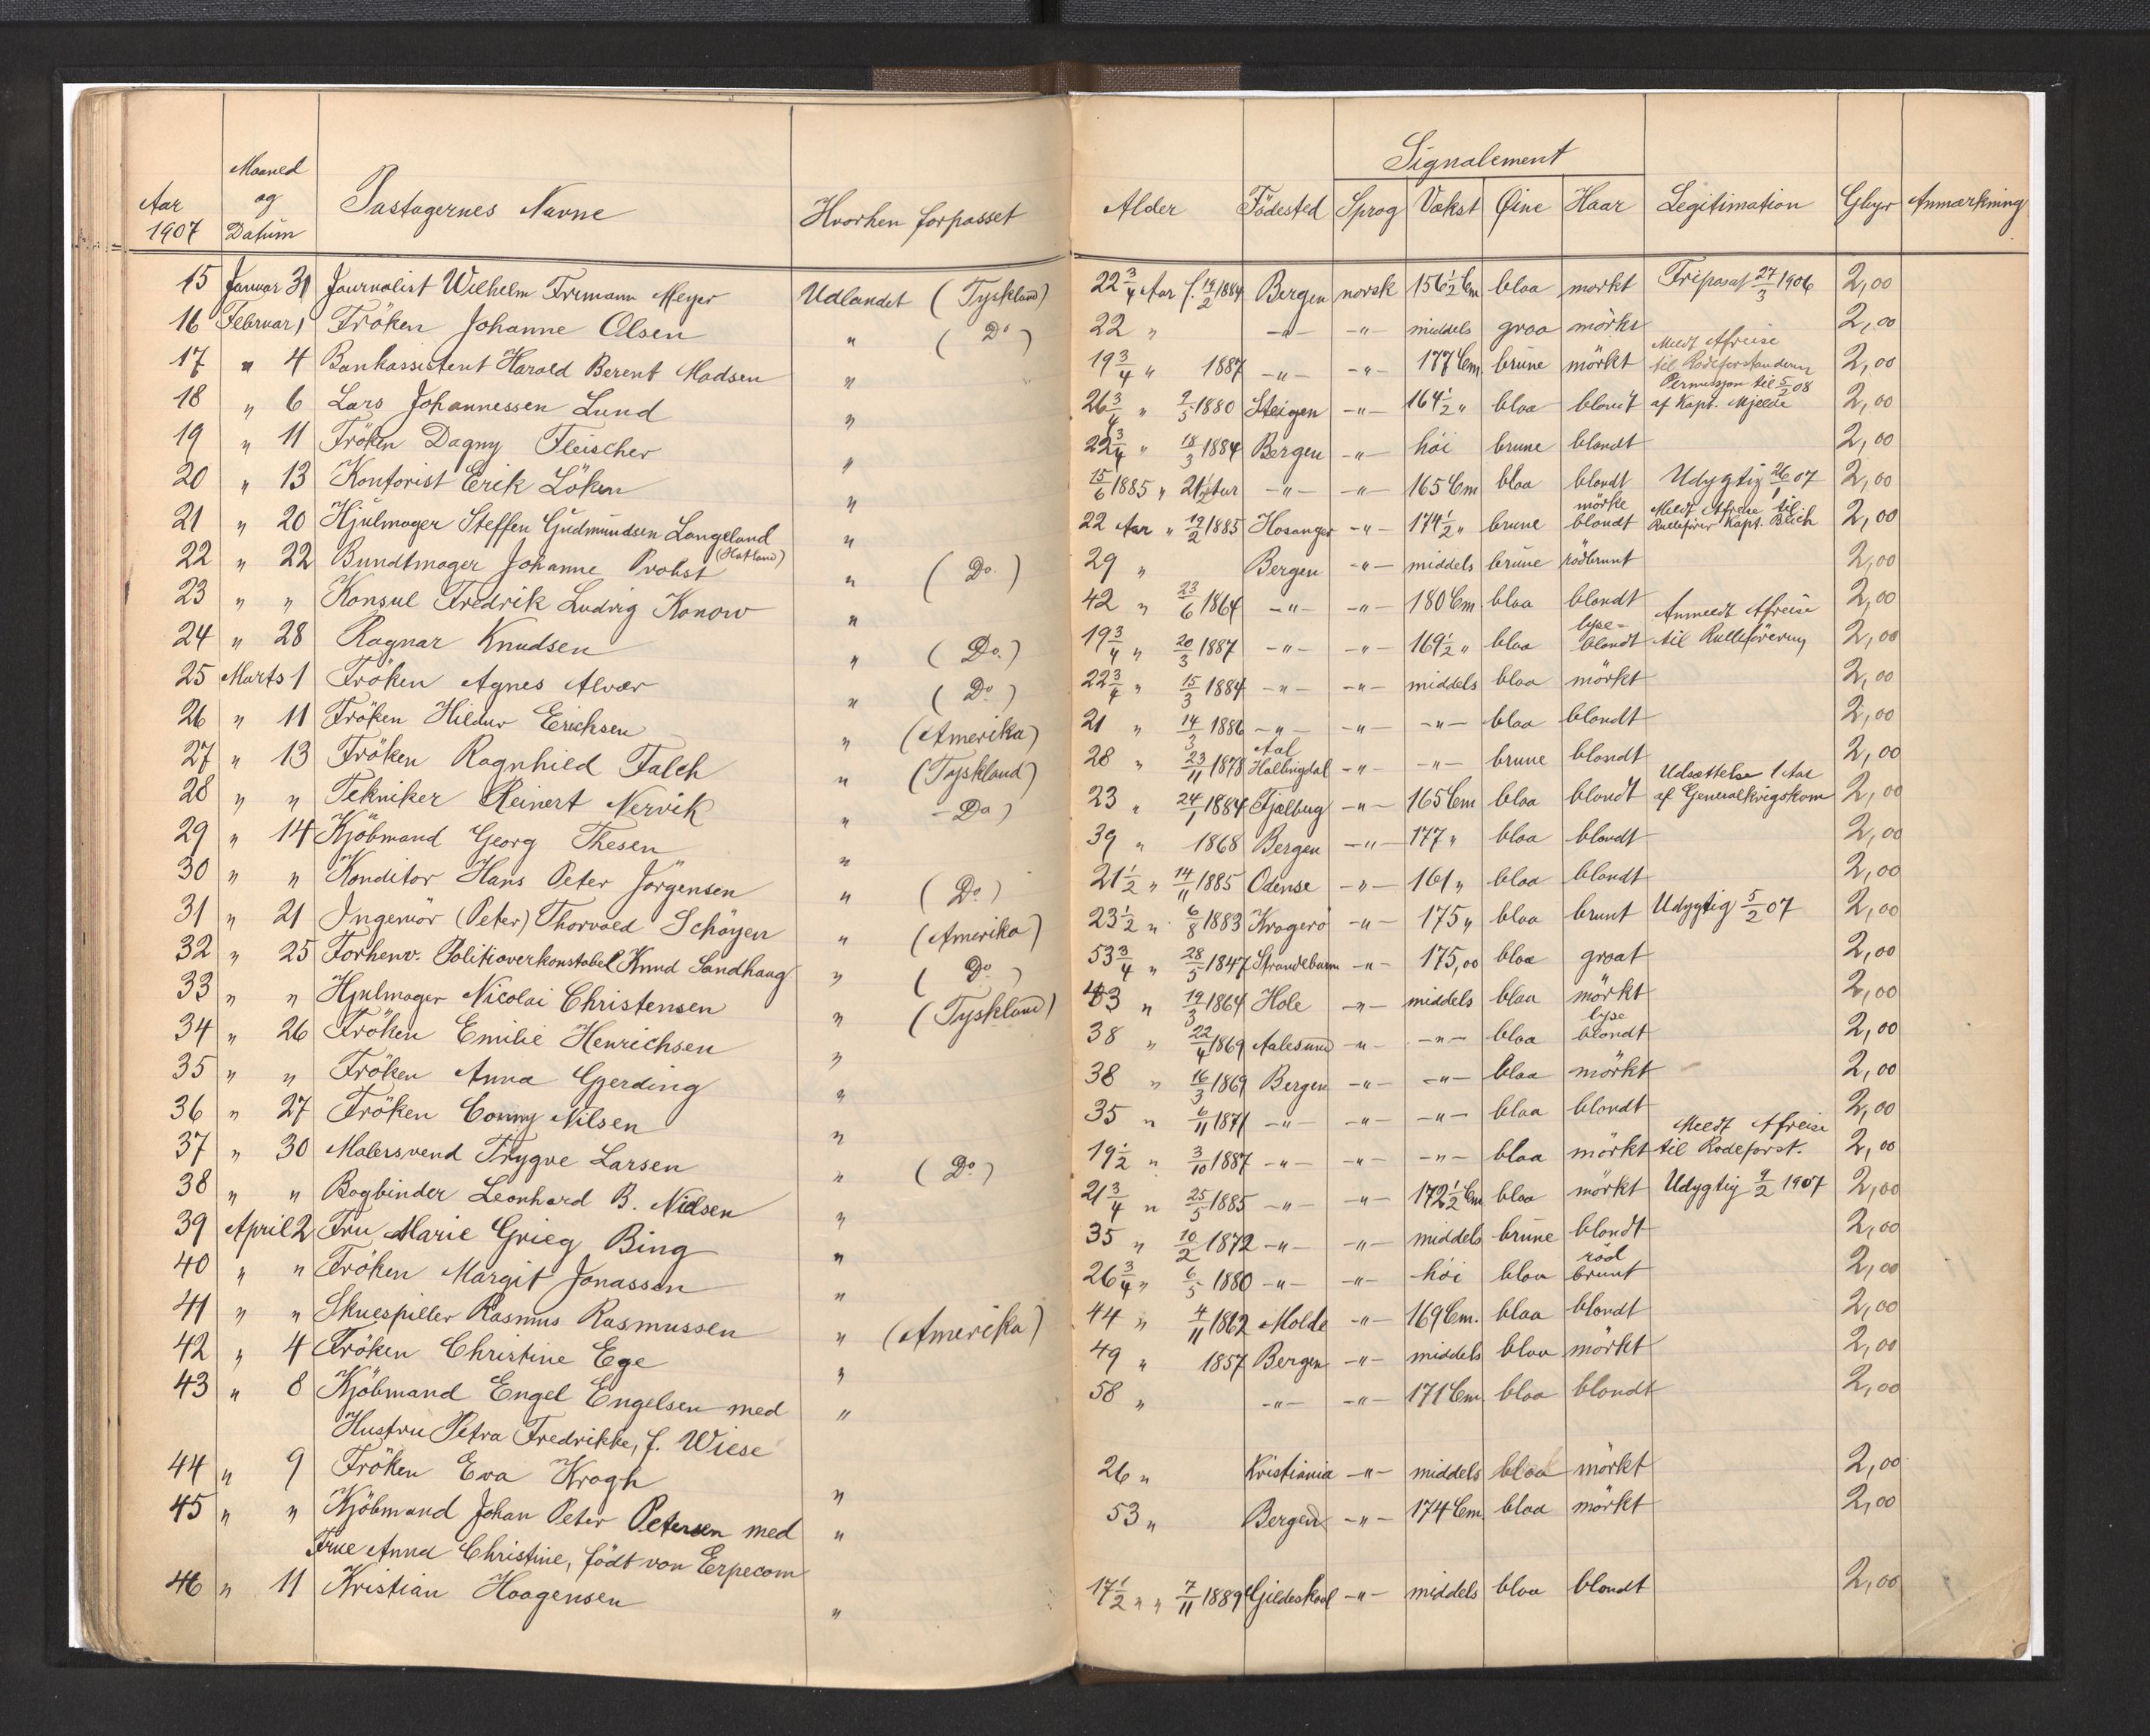 Signalement
Aar 1907 Maaned og Datum Pastagernes Navne Hvorhen forpasset Alder Födested Sprog Vækst Øine Haar Legitimation Gbyr Anmærkning
15 Januar 31 Journalist Wilhelm Meyer Udlandet (Tyskland) 22 3/4 Aar f. 19/2 1884 Bergen norsk 156 1/2 Cm blaa mørkt Fripasas 27/3 1906 2,00
16 Februar 1 Fröken Johanne Olsen " (Do) 22 " -"- -"- middels graa mörkt 2,00
17 " 4 Bankassistent Harald Berent Madsen " 19 3/4 " 1887 -"- -"- 177 Cm brune mörkt Meldt Afreise til Rodeforstanderen 2,00
18 " 6 Lars Johannessen Lund " 26 3/4 " 9/5 1880 Steigen -"- 164 1/2 " blaa blondt Permission til 5/2 08 af Kapt. Mjelde 2,00
19 " 11 Fröken Dagny Fleischer " 22 3/4 " 18/3 1884 Bergen -"- höi brune blondt 2,00
20 " 13 Kontorist Erik Löken " 15/6 1885 " 21 1/2 Aar -"- -"- 165 Cm blaa blondt Udygtig 26/1 07 2,00
21 " 20 Hjulmager Steffen Gudmundsen Langeland (Hatland) " 22 Aar " 19/2 1885 Hosanger -"- 174 1/2 " brune mörke blondt Meldt Afreise til Rullefører Kapt. Blich 2,00
22 " 22 Bundtmager Johanne Probst " (Do.) 29 " Bergen -"- middels brune rödbrunt 2,00
23 " " Konsul Fredrik Ludvig Konow " 42 " 23/6 1864 -"- -"- 180 Cm blaa blondt 2,00
24 " 28 Ragnar Knudsen " (Do.) 19 3/4 " 20/3 1887 -"- -"- 169 1/2 " blaa lyse-blondt Anmeldt Afreise til Rulleföreren 2,00
25 Marts 1 Fröken Agnes Alvær " (Do) 22 3/4 " 15/3 1884 -"- -"- middels blaa mörkt 2,00
26 " 11 Fröken Hildur Erichsen " (Amerika) 21 " 14/3 1886 -"- -"- -"- blaa blondt 2,00
27 " 13 Fröken Ragnhild Falch " (Tyskland) 28 " 23/11 1878 Aal Hallingdal -"- -"- brune blondt 2,00
28 " " Tekniker Reinert Nervik " -Do) 23 " 24/1 1884 Fjælberg -"- 165 Cm blaa blondt Udsættelse 1 Aar af Generalkrigskom 2,00
29 " 14 Kjöbmand Georg Thesen " 39 " 1868 Bergen -"- 177 " blaa blondt 2,00
30 " " Konditor Hans Peter Jörgensen " (Do.) 21 1/2 " 14/11 1885 Odense -"- 161 " blaa blondt 2,00
31 " 21 Ingeniör (Peter) Thorvald Schöyen " (Amerika) 23 1/2 " 6/8 1883 Kragerö -"- 175 " blaa brunt Udygtig 5/2 07 2,00
32 " 25 Forhenv. Politioverkonstabel Knud Sandhaug " (Do) 53 3/4 " 28/5 1847 Strandebarm -"- 175,00 blaa graat 2,00
33 " " Hjulmager Nicolai Christensen " (Tyskland) 43 " 19/3 1864 Hole -"- middels blaa mörkt 2,00
34 " 26 Fröken Emilie Henrichsen " 38 " 22/4 1869 Aalesund -"- -"- blaa lyse blondt 2,00
35 " " Fröken Anna Gjerding " 38 " 16/3 1869 Bergen -"- -"- blaa mörkt 2,00
36 " 27 Fröken Conny Nilsen " 35 " 6/11 1871 -"- -"- -"- blaa blondt 2,00
37 " 30 Malersvend Trygve Larsen " (Do.) 19 1/2 " 3/10 1887 -"- -"- -"- blaa mörkt Meldt Afreise til Rodeforst. 2,00
38 " " Bogbinder Leonhard B. Nielsen " 21 3/4 " 25/5 1885 -"- -"- 172 1/2 Cm blaa mörkt Udygtig 9/2 1907 2,00
39 April 2 Fru Marie Grieg Bing " 35 " 10/2 1872 -"- -"- middels brune blondt 2,00
40 " " Fröken Margit Jonassen " 26 3/4 " 6/5 1880 -"- -"- höi blaa röd brunt 2,00
41 " " Skuespiller Rasmus Rasmussen " (Amerika) 44 " 4/11 1862 Molde -"- 169 Cm. blaa blondt 2,00
42 " 4 Fröken Christine Ege " 49 " 1857 Bergen -"- middels blaa mörkt 2,00
43 " 8 Kjöbmand Engel Engelsen med " 58 " -"- -"- 171 Cm. blaa blondt 2,00
Hustru Petra Fredrikke, f. Wiese
44 " 9 Fröken Eva Krogh " 26 " Kristiania -"- middels blaa mörkt 2,00
45 " " Kjöbmand Johan Peter Petersen med " 53 " Bergen -"- 174 Cm blaa mörkt 2,00
Frue Anna Christine, födt von Erpecom
46 " 11 Kristian Haagensen " 17 1/2 " " 7/11 1889 Gildeskaal -"- middels blaa blondt 2,00